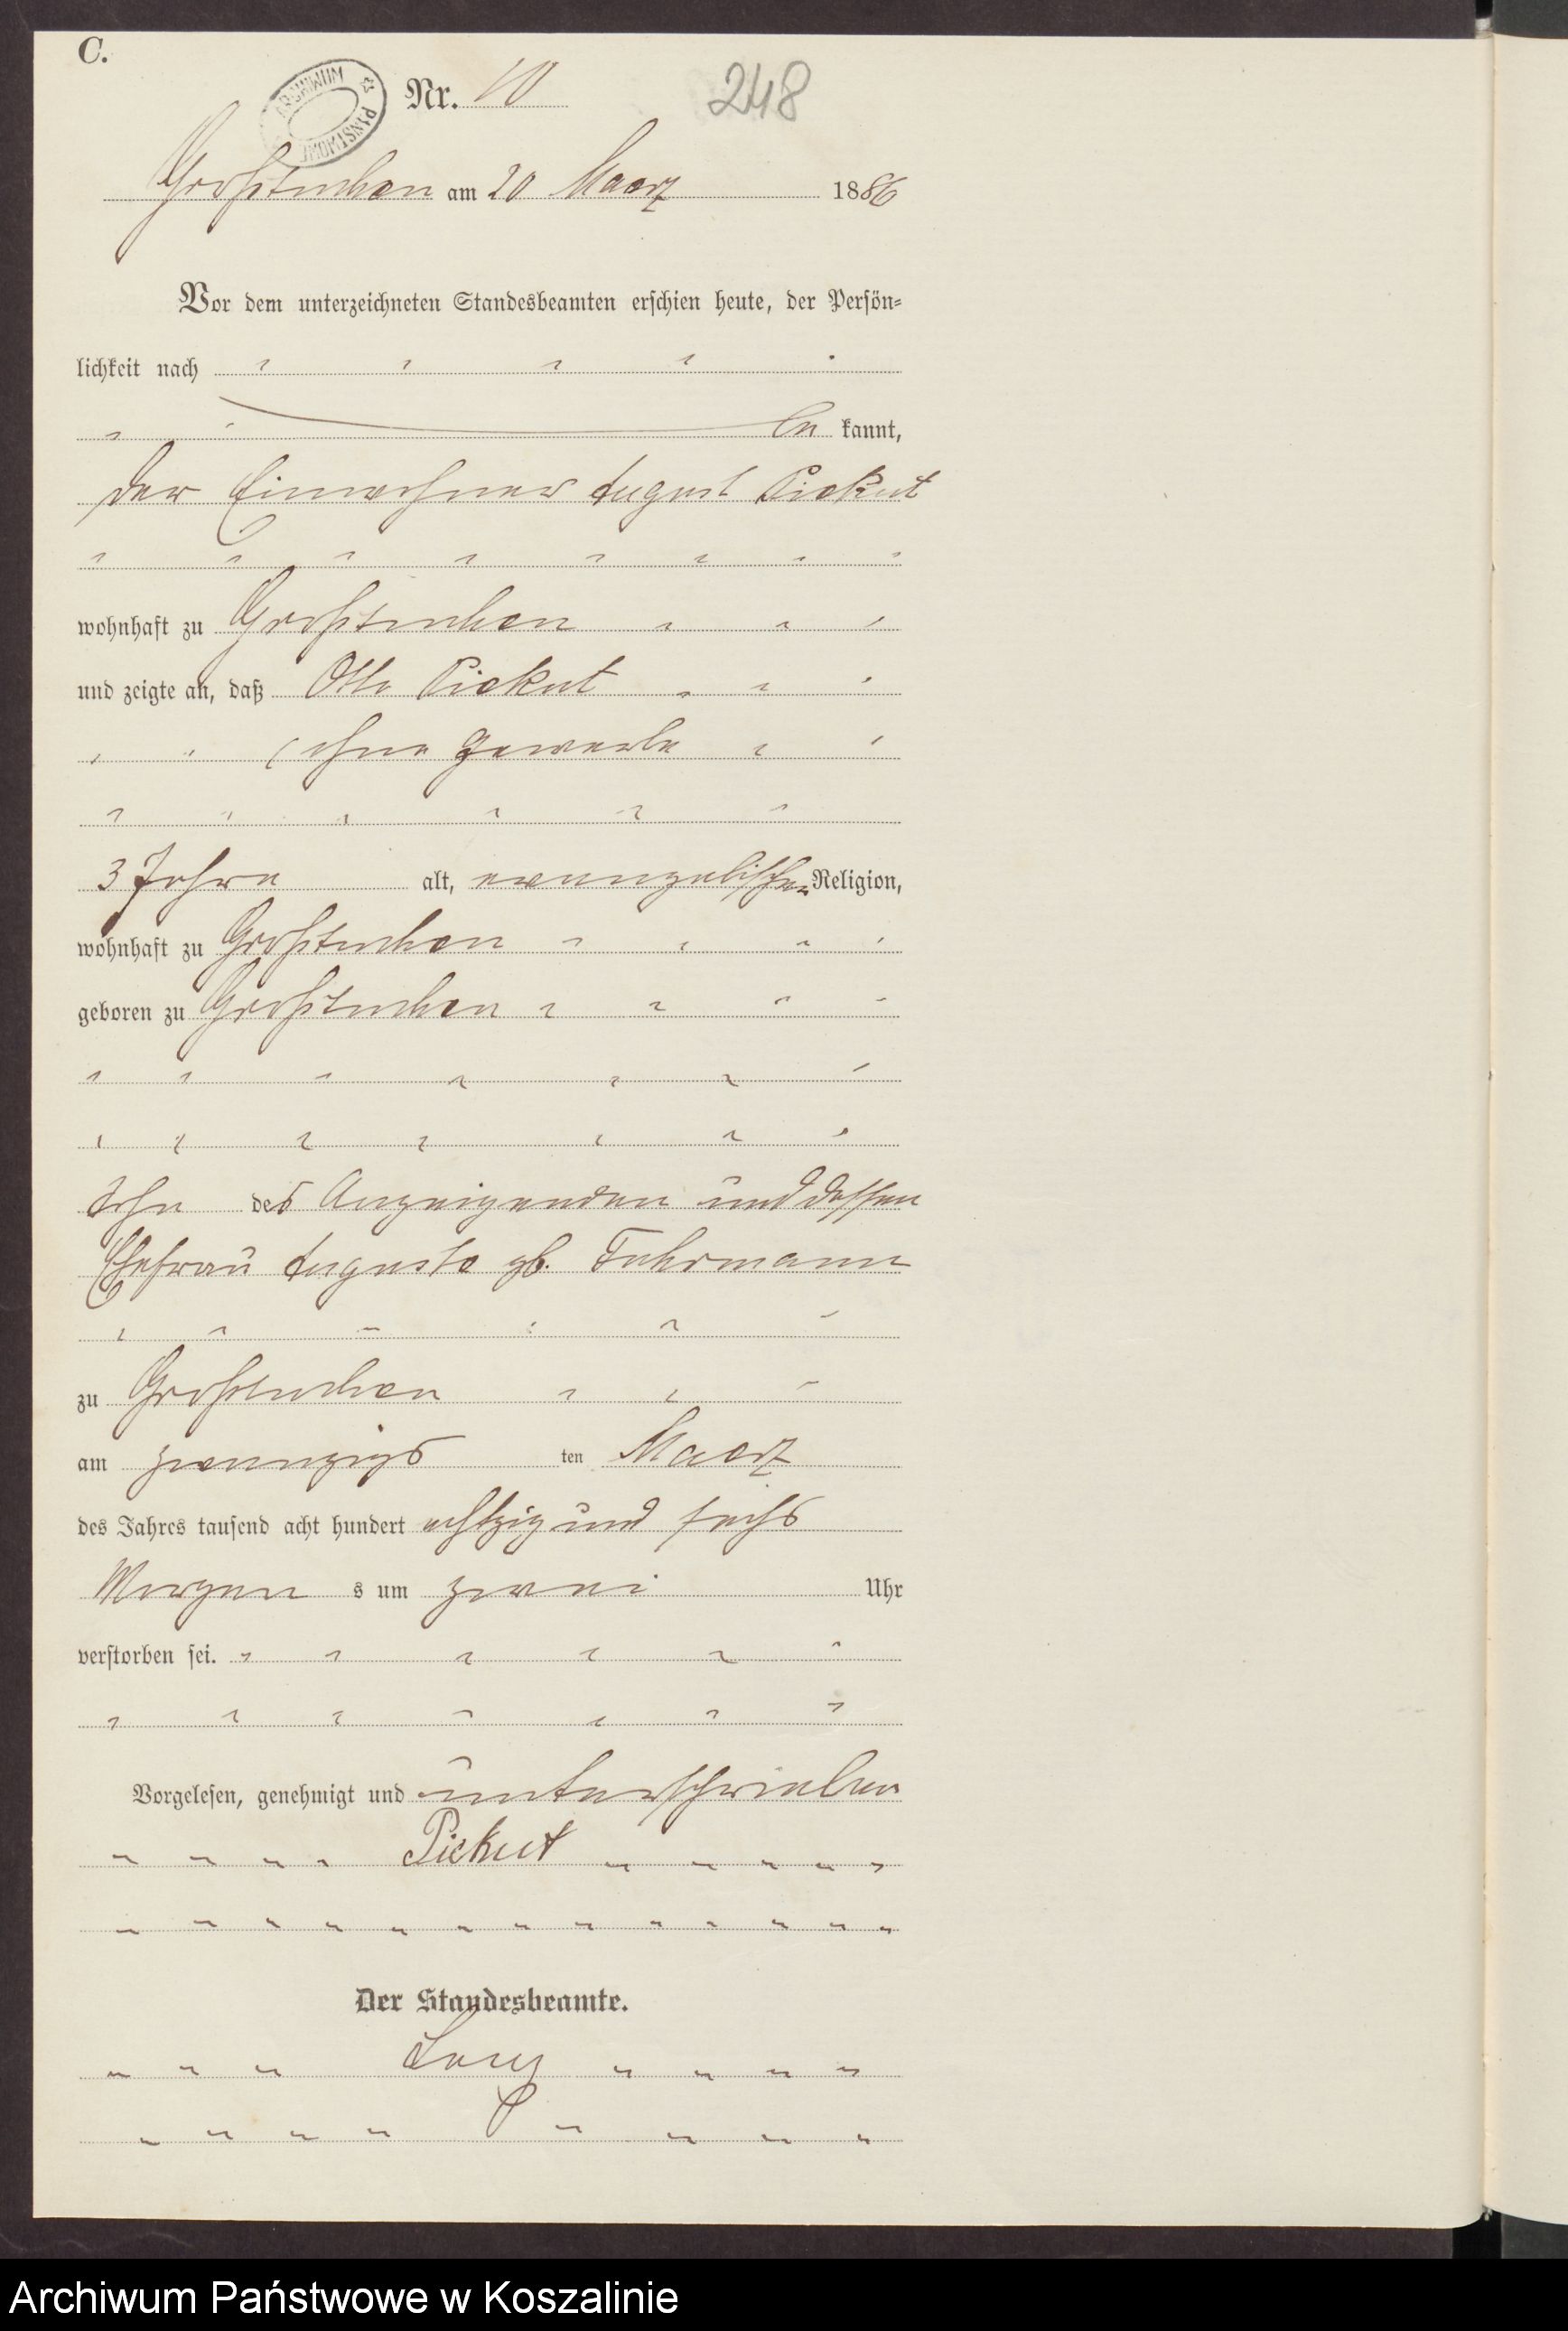 C.
ARCHIWUM PAŃSTWOWE
Nr. 10
248
Großtuchen am 20 Maerz 1886
Vor dem unterzeichneten Standesbeamten erschien heute, der Persön=
lichkeit nach
be kannt,
der Einwohner August Piekut
wohnhaft zu Großtuchen
und zeigte an, daß Otto Piekut
ohne Gewerbe
3 Jahre alt, evangelischer Religion,
wohnhaft zu Großtuchen
geboren zu Großtuchen
Sohn des Anzeigenden und dessen
Ehefrau Auguste gb. Fuhrmann
zu Großtuchen
am zwanzigs ten Maerz
des Jahres tausend acht hundert achtzig und sechs
Morgen s um zwei Uhr
verstorben sei.
Vorgelesen, genehmigt und unterschrieben
Piekut
Der Standesbeamte.
Archiwum Państwowe w Koszalinie